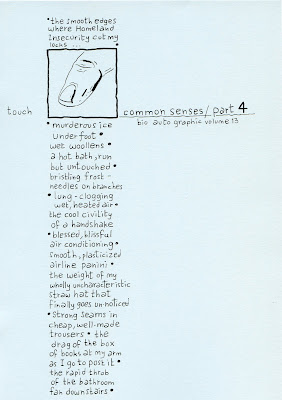 • the smooth edges
where Homeland
Insecurity cut my
locks ...
touch
common senses / part 4
bio auto graphic volume 13
• murderous ice
underfoot •
wet woollens •
a hot bath, run
but untouched •
bristling frost-
needles on branches
• lung-clogging
wet, heated air •
the cool civility
of a handshake
• blessed, blissful
air conditioning •
smooth, plasticized
airline panini •
the weight of my
wholly uncharacteristic
straw hat that
finally goes un-noticed
• strong seams in
cheap, well-made
trousers • the
drag of the box
of books at my arm
as I go to post it •
the rapid throb
of the bathroom
fan downstairs •